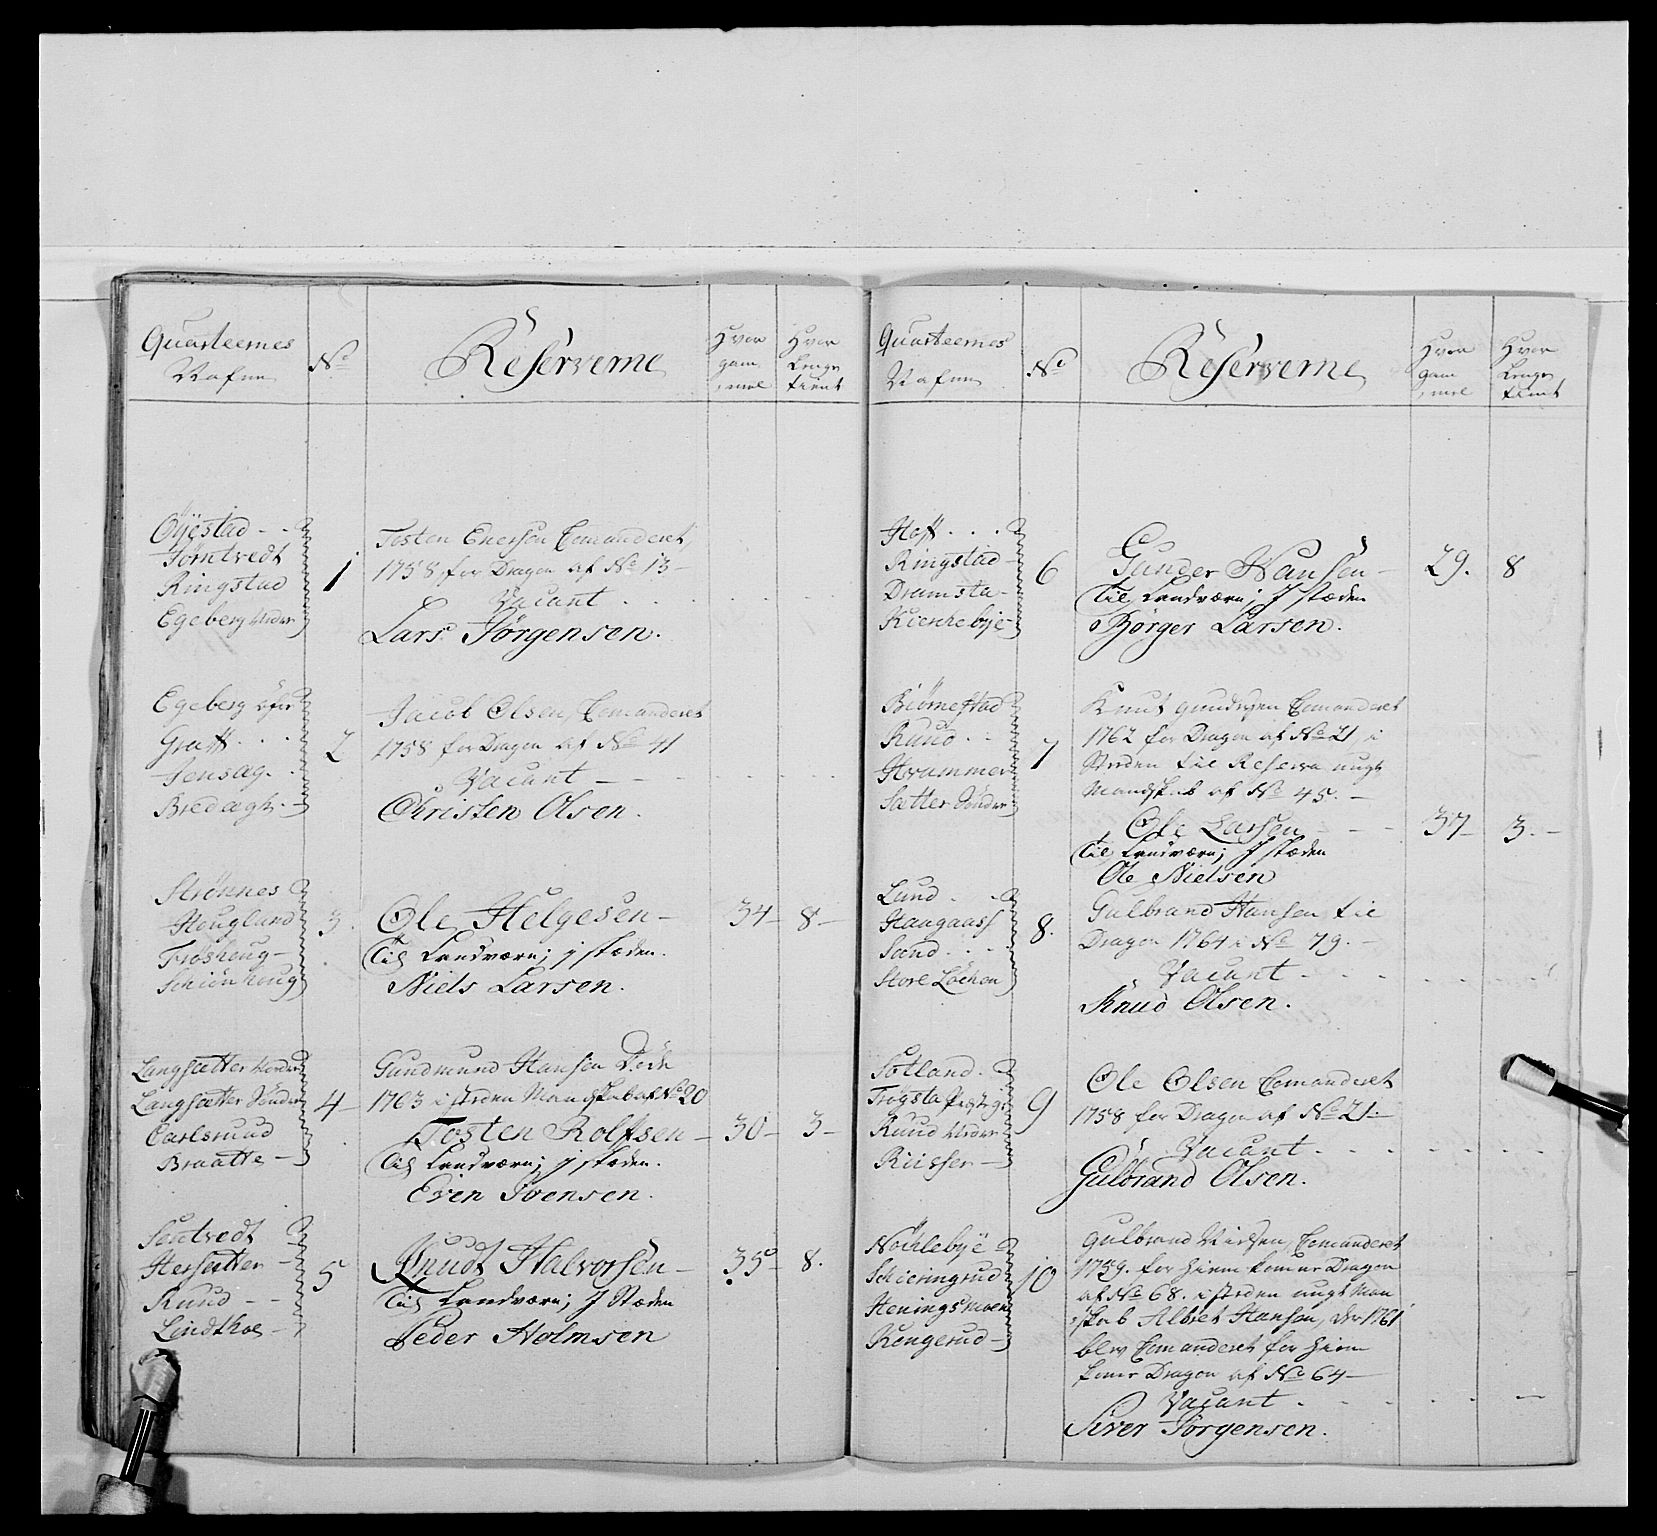 Quarteernes
Nafne
No
Reserverne
Hvor
gam
mel
Hvor
Lenge
tient
Öÿestad
Tomtvedt
Ringstad
Egeberg Neder
1
Tosten Enersen Comanderet
1758 for Dragon af No 13
Vacant
Lars Jörgensen.
Egeberg öfre
Graff
Jensæg
Bredægh
2
Jacob Olsen, Comanderet
1758 for Dragon af No 41
Vacant
Christen Olsen.
Strönnes
Houglund
Frösheug
Schiönhoug
3.
Ole Helgesen
34
8
Til Landværn; j stæden.
Niels Larsen.
Langsætter Norder
Langsætter Sönder
Carlsrund
Braatte
4
Gundmund Hansen Döde
1763 i steden Mandskab af No 20
Tosten Rolfsen
30
3
Til Landværn; j stæden.
Even Ivensen.
Sontvedt
Hersætter
Ruud
Lindthoe
5
Knudt Halvorsen
35
8.
Til Landværn; J Stæden
Peder Holmsen
Quarteernes
Nafne
No
Reserverne
Hvor
gam
mel
Hvor
Lenge
tient
Hoff
Ringstad
Dramsta
Kienkebÿe
6
Gunder Hansen
29.
8
Til Landværn; J stæden
Börger Larsen.
Biörnestad
Ruud
Hvammer
Sætter Sönder
7
Knut Gundersen Comanderet
1762 for Dragon af No 21 i
Steden til Reserve nugt
Mandskab af No 45.
Ole Larsen
37
3.
Til Landværn; J stæden
Ole Nielsen
Lund
Haagaass
Sand
Store Löchen
8.
Gulbrand Hansen til
Dragon 1764 i No 79.
Vacant
Knud Olsen.
Sotland
Trögsta Præstegr
Ruud Neder
Riisser
9
Ole Olsen Comanderet
1758 for Dragon af No 21.
Vacant
Gulbrand Olsen.
Nochlebÿe
Schieringrud
Henings moen
Kengerud
10
Gulbrand Nielsen, Comanderet
1759. for hiem komne Dragon
af No 68. i steden nugt Man
skab Albret Hansen, der 1761
blev Comanderet for hiem
komne Dragon af No 64
Vacant
Siver Jörgensen.